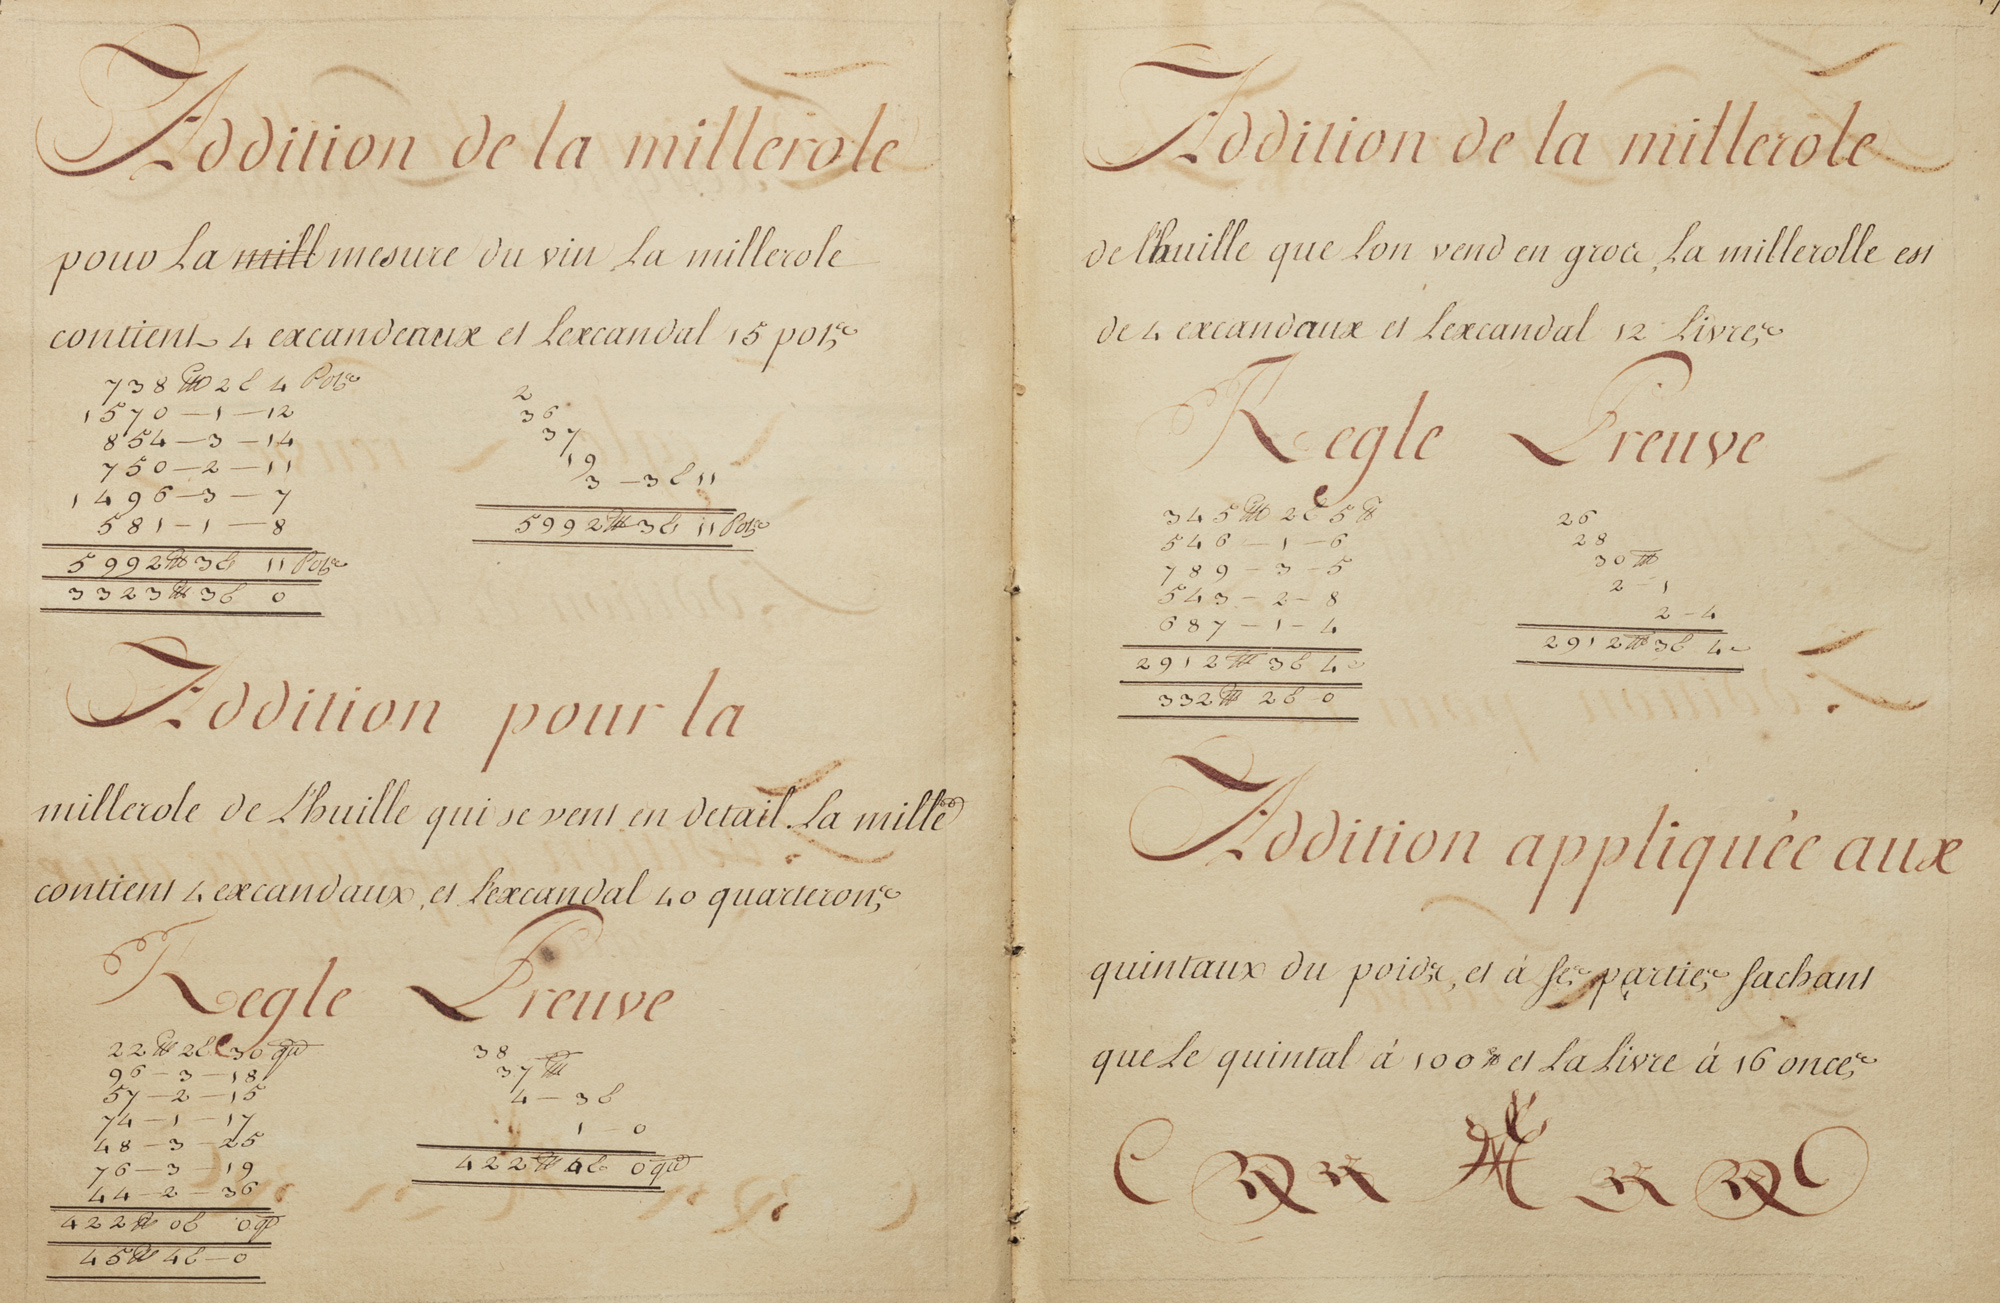 Addition de la millerole
pour La mill mesure du vin La millerole
contient 4 excandeaux et Lexcandal 15 pots
738 m 2 E 4 Pots
1570 — 1 — 12
854 — 3 — 14
750 — 2 — 11
1496 — 3 — 7
581 — 1 — 8
5992 m 3 E 11 Pots
3323 m 3 E 0
2
36
37
19
3 — 3 E 11
5992 m 3 E 11 Pots
Addition pour la
millerole de L'huille qui se vent en detail. La mille
contient 4 excandaux, et L'excandal 40 quarterons
Regle Preuve
22 m 2 E 30 qu
96 — 3 — 18
57 — 2 — 15
74 — 1 — 17
48 — 3 — 25
76 — 3 — 19
44 — 2 — 36
422 m 0 E 0 q
45 m 4 E — 0
38
37 m
4 — 3 E
1 — 0
422 m 4 E 0 qu
Addition de la millerole
de l'huille que Lon vend en gros, La millerolle est
de 4 excandaux et Lexcandal 12 Livres
Regle Preuve
345 m 2 E 5 ₶
546 — 1 — 6
789 — 3 — 5
543 — 2 — 8
687 — 1 — 4
2912 m 3 E 4
332 m 2 E 0
26
28
30 m
2 — 1
2 — 4
2912 m 3 E 4
Addition appliquée aux
quintaux du poids, et á ses parties sachant
que Le quintal á 100 ₶ et La Livre á 16 onces